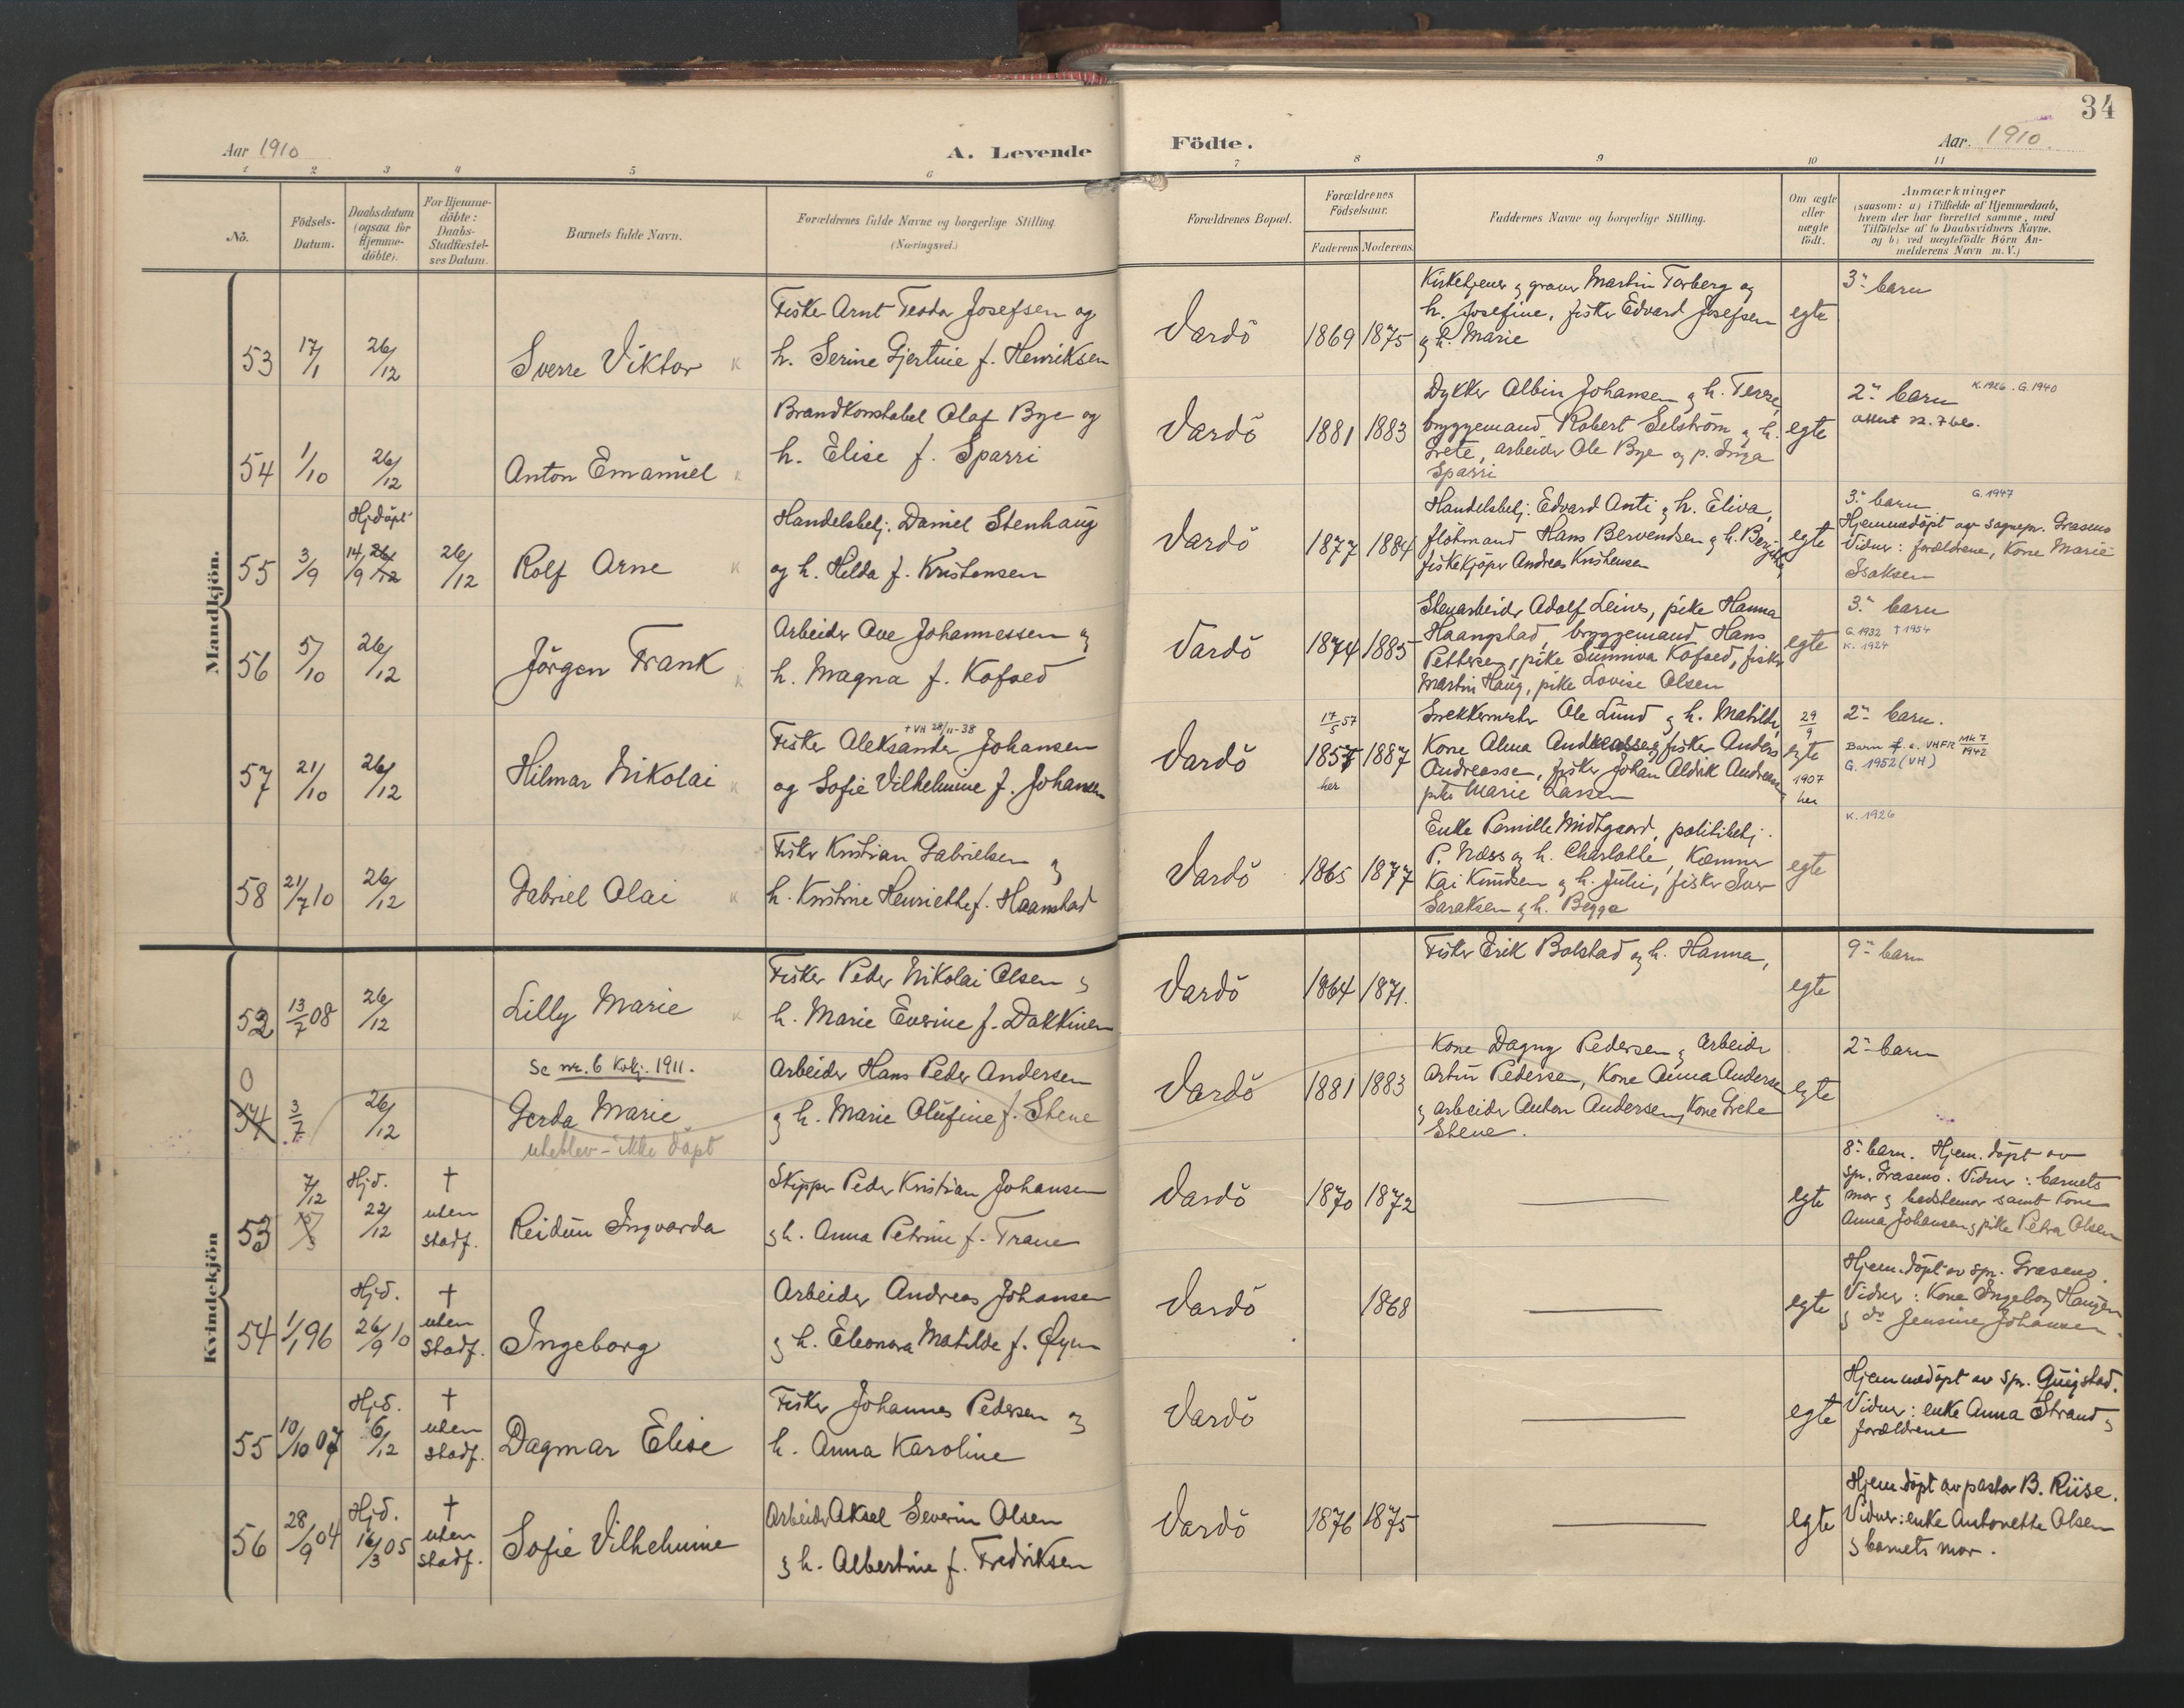 34
Aar 1910
A. Levende Födte.
Aar 1910.
1 2 3 4 5 6 7 8 9 10 11
No.
Födsels-
Datum.
Daabsdatum
(ogsaa for
Hjemme-
döbte).
For Hjemme-
döbte:
Daabs-
Stadfæstel-
ses Datum.
Barnets fulde Navn.
Forældrenes fulde Navne og borgerlige Stilling
(Næringsvei.)
Forældrenes Bopæl.
Forældrenes
Födselsaar.
Faderens Moderens
Faddernes Navne og borgerlige Stilling.
Om ægte
eller
uægte
født.
Anmærkninger
(saasom: a) i Tilfælde af Hjemmedaab,
hvem der har forrettet samme, med
Tilföielse af to Daabsvidners Navne,
og b) ved uægtefödte Börn An-
melderens Navn m. V.)
Mandkjön.
53 17/1 26/12 Sverre Viktor K
Fisker Arnt Teodor Josefsen og
h. Serine Gjertine f. Henriksen
Vardö 1869 1875
Kirketjener og graver Martin Torberg og
h. Josefine, fisker Edvard Josefsen
og h. Marie
egte
3. barn
54 1/10 26/12 Anton Emanuel K
Brandkonstabel Olaf Bye og
h. Elise f. Sparri
Vardö 1881 1883
Dykker Albin Johansen og h. Terese,
bryggemand Robert Selström og h.
Grete, arbeider Ole Bye og p. Inga
Sparri
egte
2. barn K. 1926. G. 1940
55 3/9 Hjdöpt 14/9 26/12 26/12 Rolf Arne K
Handelsbetj. Daniel Stenhaug
og h. Hilda f. Kristensen
Vardö 1877 1884
Handelsbetj. Edvard Anti og h. Eliva,
flöhmand Hans Berventsen og h.
fiskekjöper Andreas Kristensen
egte
3. barn G. 1947
Hjemmedöpt av sognepr. Grasmo
Vidner: forældrene, Kone Marie
Isaksen
56 5/10 26/12 Jörgen Frank K
Arbeider Ove Johannessen og
h. Magna f. Kofoed
Vardö 1874 1885
Stenarbeider Adolf Leines, pike Hanna
Haangstad, bryggemand Hans
Pettersen, pike Sunniva Kofoed, fisker
Martin Haug, pike Lovise Olsen
egte
3. barn
G. 1932 † 1954
K. 1924
57 21/10 26/12 Hilmar Nikolai K
† VH 28/11-38
Fisker Aleksander Johansen
og Sofie Vilhelmine f. Johansen
Vardö 17/5 57 1857 her 1887
Snekkermester Ole Lund og h. Matilde,
Kone Alma Andreassen, fisker Anders
Andreassen, fisker Johan Aldrik Andreassen,
pike Marie Lassen
29/9 egte 1907 her
2. barn.
Barn f. a. VHFR MK 7 1942
G. 1952 (VH)
58 21/7 10 26/12 Gabriel Olai K
Fisker Kristian Gabrielsen og
h. Kristine Henriette f. Haanstad
Vardö 1865 1877
Enke Pernille Midtgaard, politibetj.
P. Næss og h. Charlotte, Kæmner
Kai Knudsen og h. Julie, fisker Iver
Saraksen og h. Begga
egte
K. 1926
Kvindekjön
52 13/7 08 26/12 Lilly Marie K
Fisker Peder Nikolai Olsen og
h. Marie Everine f. Dakkinen
Vardö 1864 1871.
Fisker Erik Bolstad og h. Hanna,
egte
9. barn
0
54 3/7 26/12
Se nr. 6 Kvkj. 1911.
Gerda Marie
uteblev - ikke döpt
Arbeider Hans Peder Andersen
og h. Marie Olufine f. Stene
Vardö 1881 1883
Kone Dagny Pedersen og Arbeider
Artur Pedersen, Kone Anna Andersen
og arbeider Anton Andersen, Kone Grete
Stene.
egte
2. barn
53 7/12 Hjd. 22/12 † uten stadf. Reidun Ingvarda
Skipper Peder Kristian Johansen
og h. Anna Petrine f. Trane
Vardö 1870 1872 —
egte
8. barn. Hjem. döpt av
spr. Grasmo. Vidner: barnets
mor og bedstemor samt Kone
Anna Johansen og pike Petra Olsen
54 1/1 96 Hjd. 26/9 10 † uten stadf. Ingeborg
Arbeider Andreas Johansen
og h. Eleonora Matilde f. Öyen
Vardö 1868 —
egte
Hjem. döpt av spr. Grasmo.
Vidner: Kone Ingeborg Hansen
og do Jensine Johansen.
55 10/10 07 Hjd. 6/12 † uten stadf. Dagmar Elise
Fisker Johannes Pedersen og
h. Anna Karoline
Vardö —
egte
Hjemmedöpt av spr.
Vidner: enke Anna Strand og
forældrene
56 28/9 04 Hjd. 16/3 05 † uten stadf. Sofie Vilhelmine
Arbeider Aksel Severin Olsen
og h. Albertine f. Fredriksen
Vardö 1876 1875 —
egte
Hjem. döpt av pastor B. Riise.
Vidner: enke Antonette Olsen
og barnets mor.